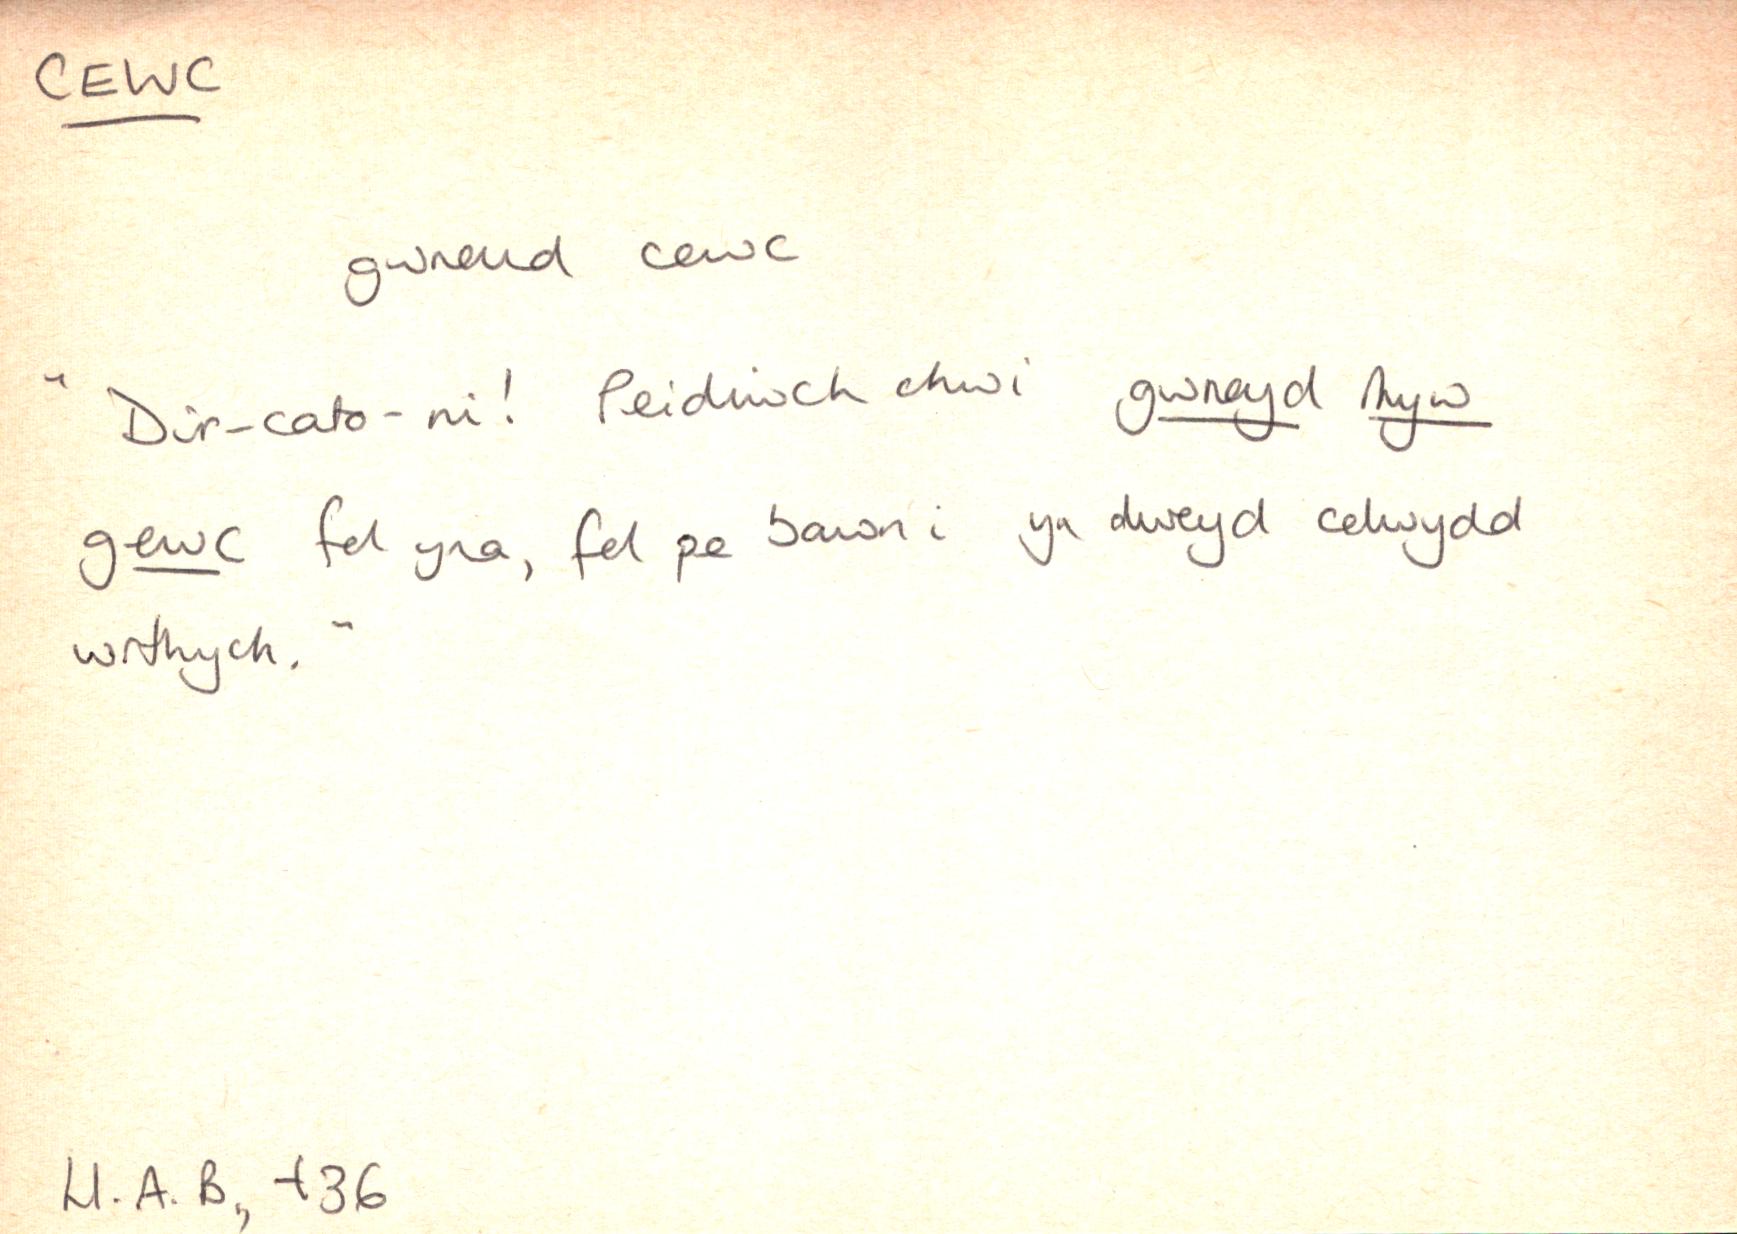 CEWC
gwneud cewc
"Dir-cato-ni! Peidiwch chwi gwneyd rhyw
gewc fel yna, fel pe bawn i yn dweyd celwydd
wrthych."
Ll. A. B., t36